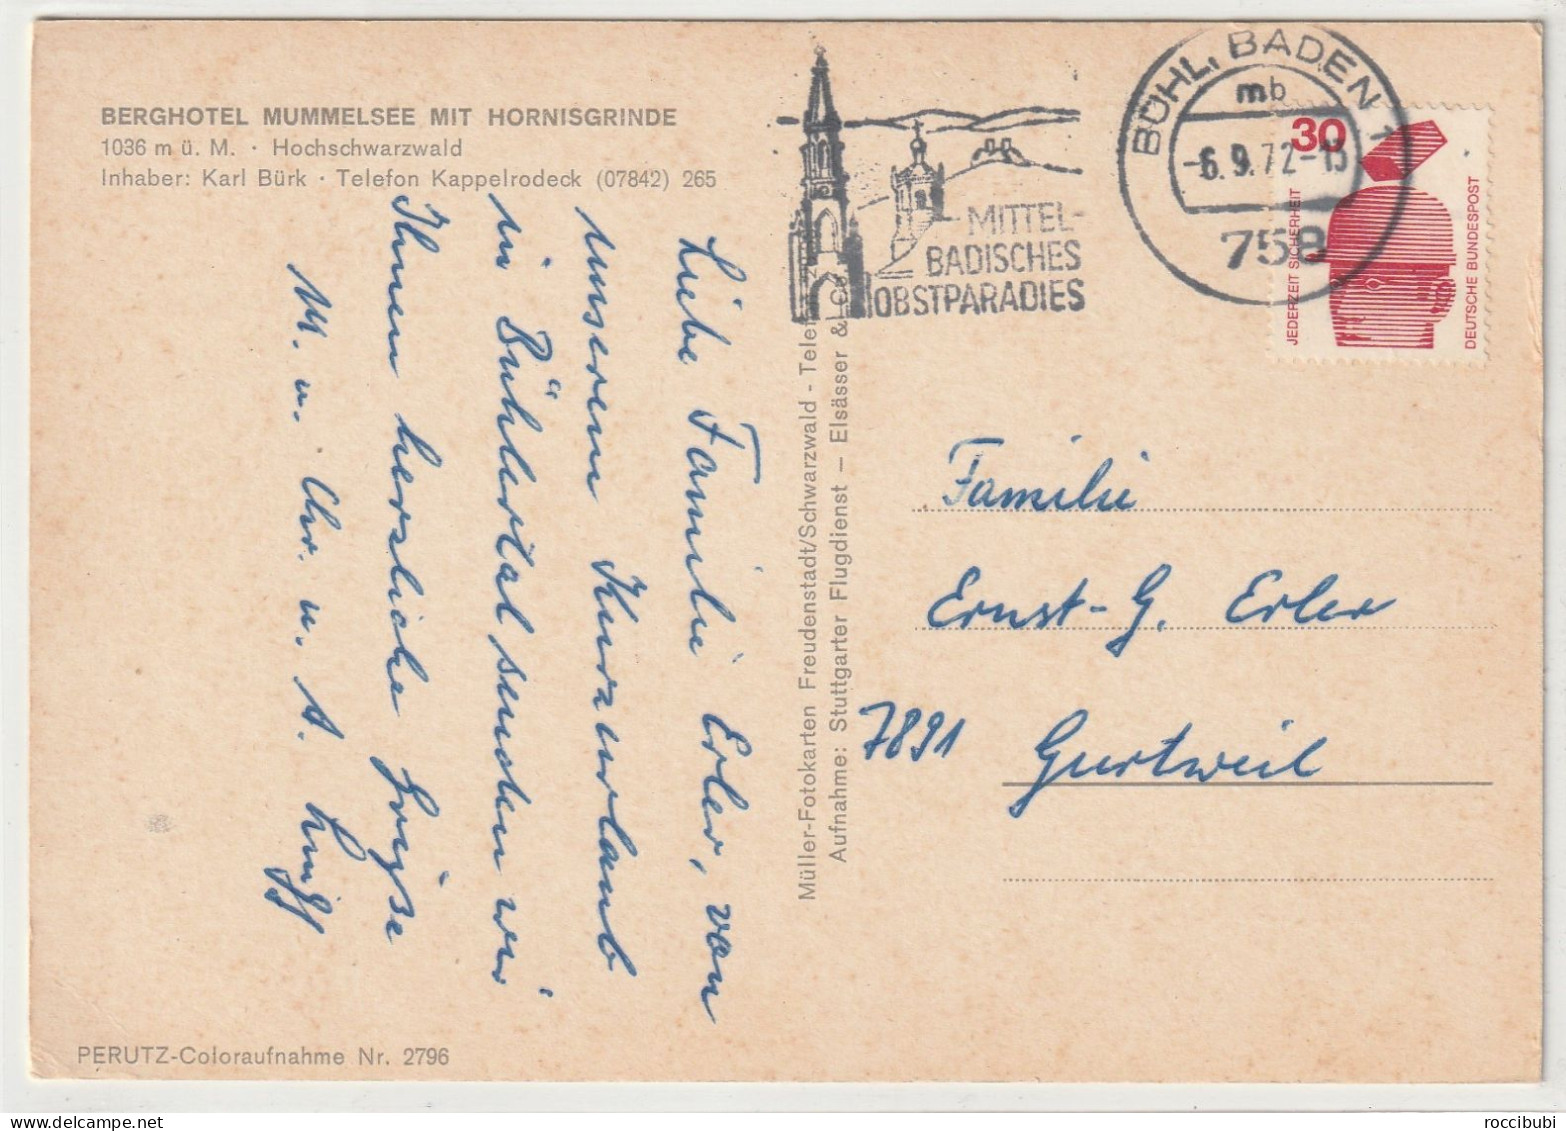 BERGHOTEL MUMMELSEE MIT HORNISGRINDE
1036 m ü. M. · Hochschwarzwald
Inhaber: Karl Bürk · Telefon Kappelrodeck (07842) 265
Liebe Familie Erler, von
unserem Kurzurlaub
in Bühlertal senden wir
Ihnen herzliche Grüße
M. u. Chr. u. A.
PERUTZ-Coloraufnahme Nr. 2796
Müller-Fotokarten Freudenstadt/Schwarzwald - Telef
Aufnahme: Stuttgarter Flugdienst — Elsässer &
MITTEL-
BADISCHES
OBSTPARADIES
BÜHL, BADEN 1
mb
-6.9.72-15
758
30
JEDERZEIT SICHERHEIT
DEUTSCHE BUNDESPOST
Familie
Ernst-G. Erler
7891 Gurtweil
roccibubi